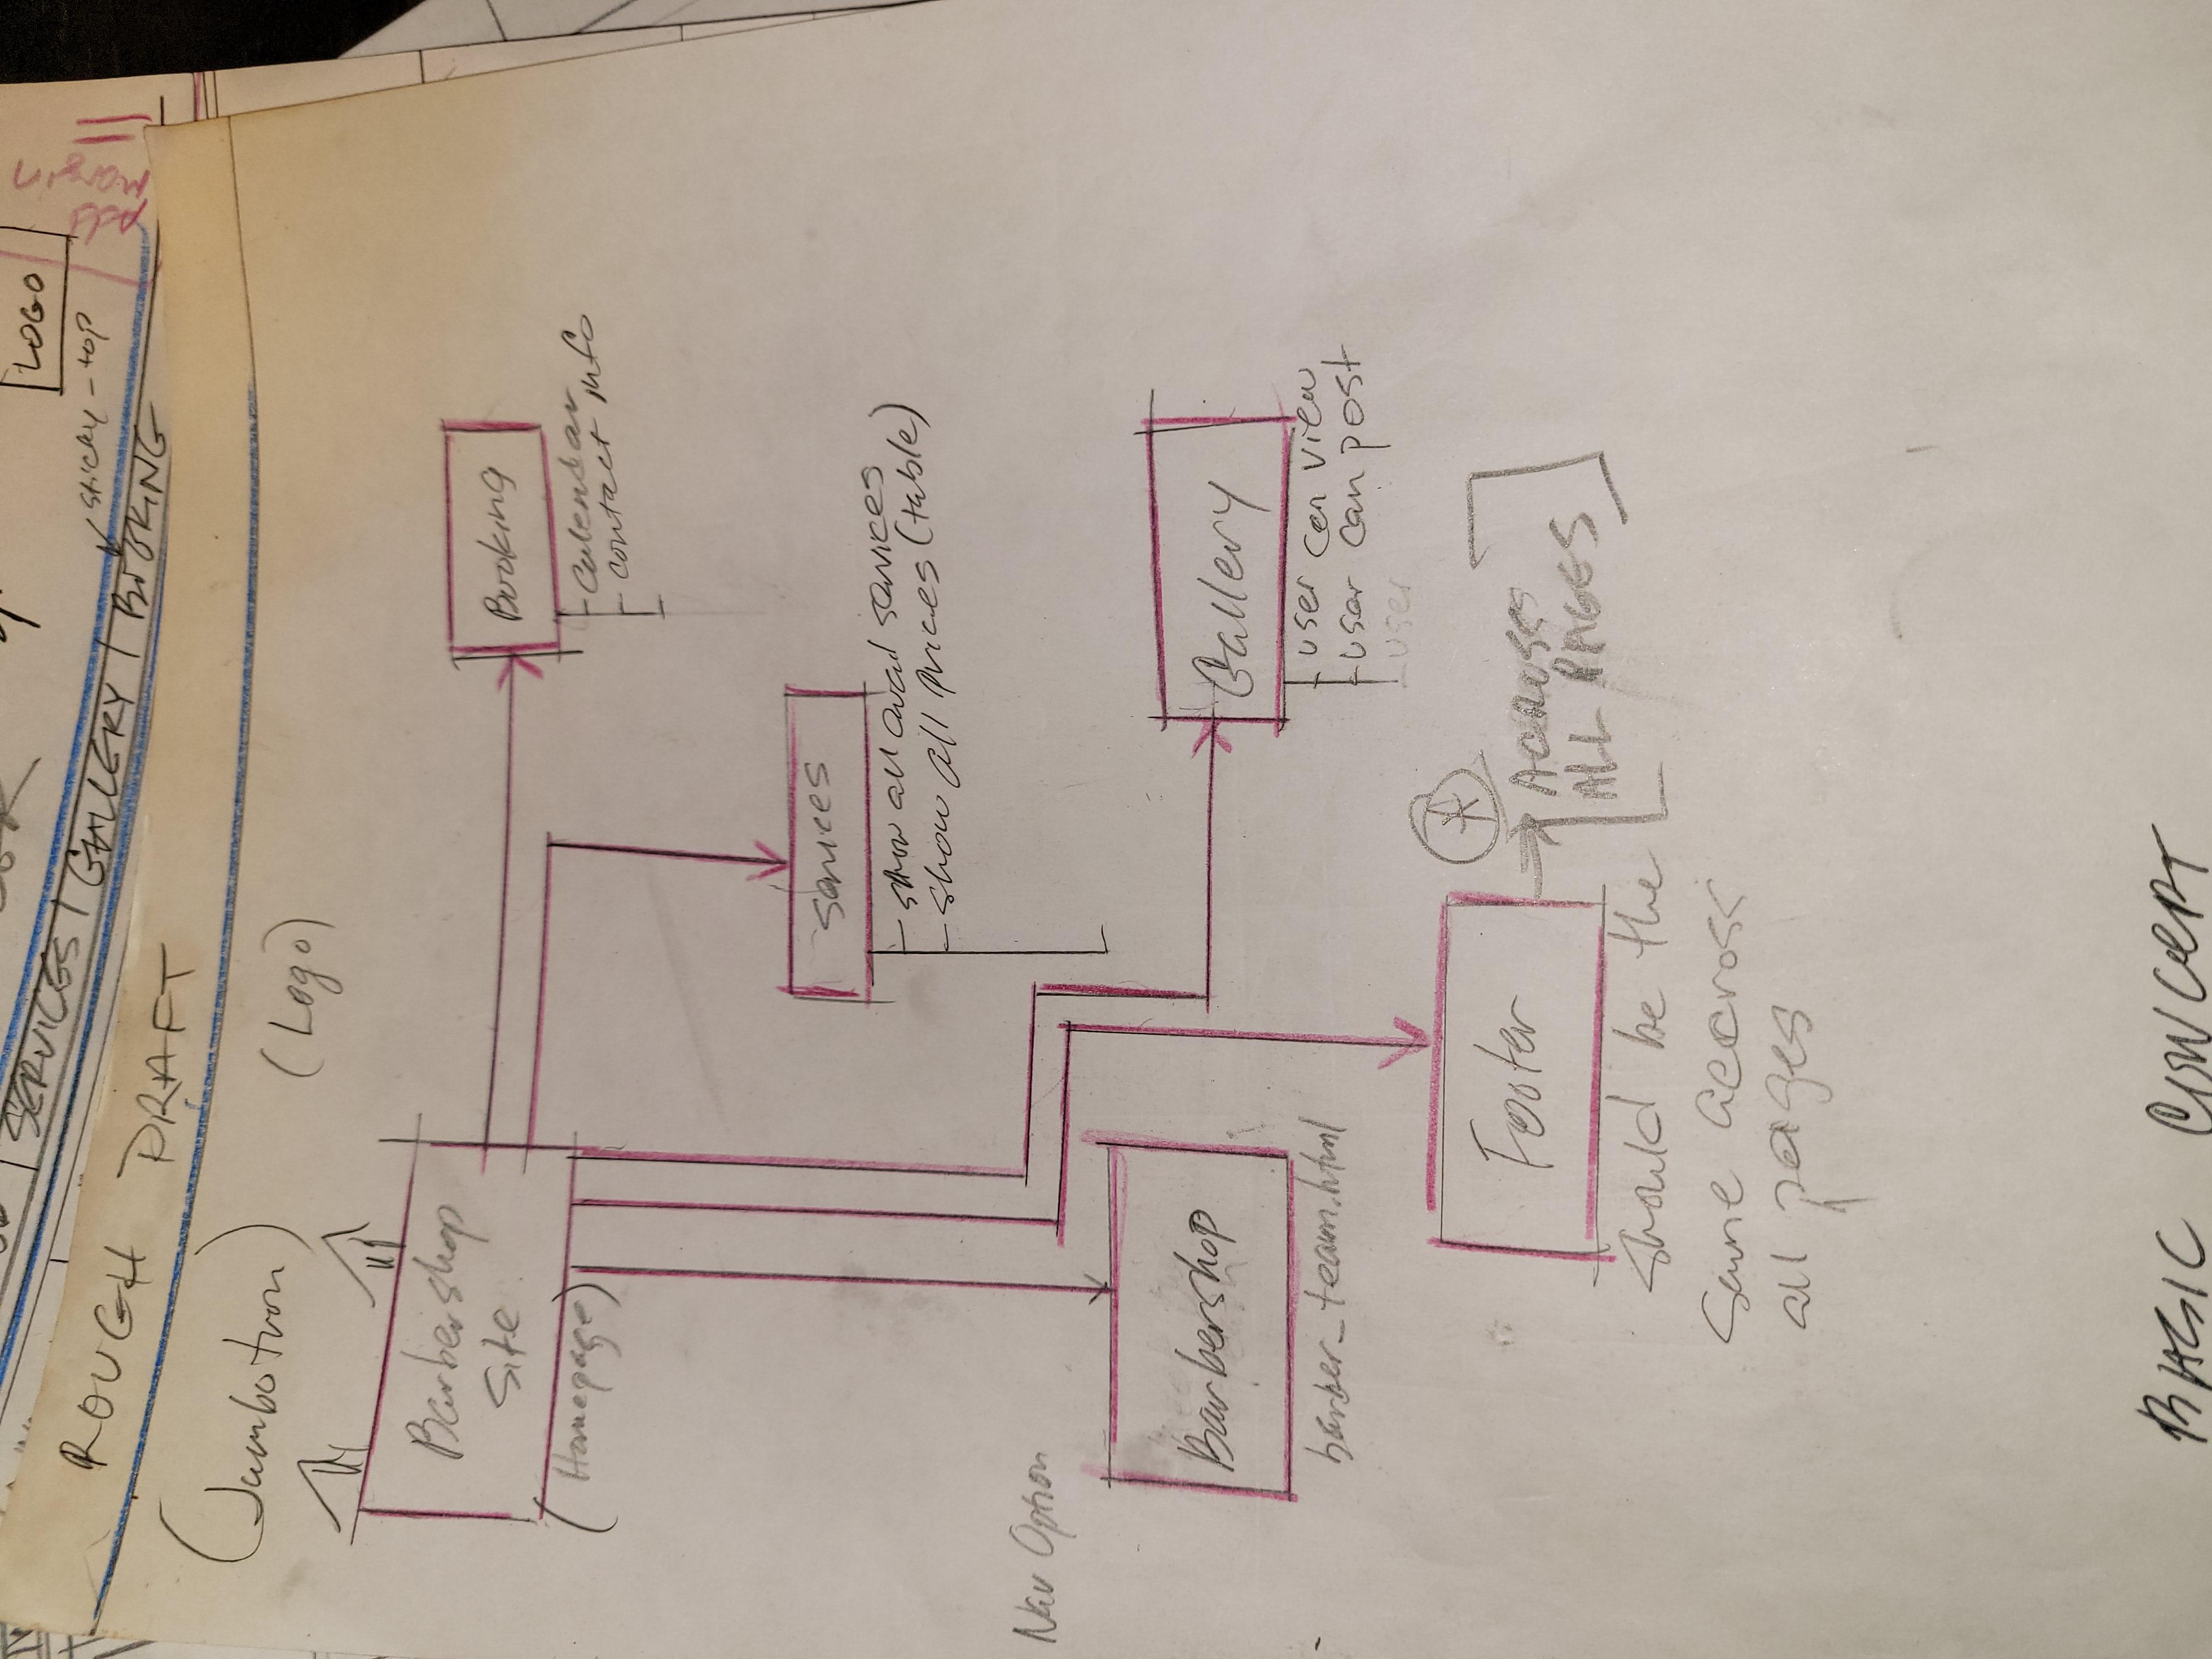 SERVICES | GALLERY | BOOKING
LOGO
sticky-top
Add
margin
ROUGH DRAFT
(Jumbotron)
(Logo)
Barbershop
Site
(Homepage)
Booking
- Calendar
- contact info
Services
- show all avail services
- show all prices (table)
Nav Option
Barbershop
barber_team.html
Gallery
- user can view
- user can post
- user
Footer
ACROSS
ALL PAGES
should be the
same accross
all pages
BASIC CONCEPT